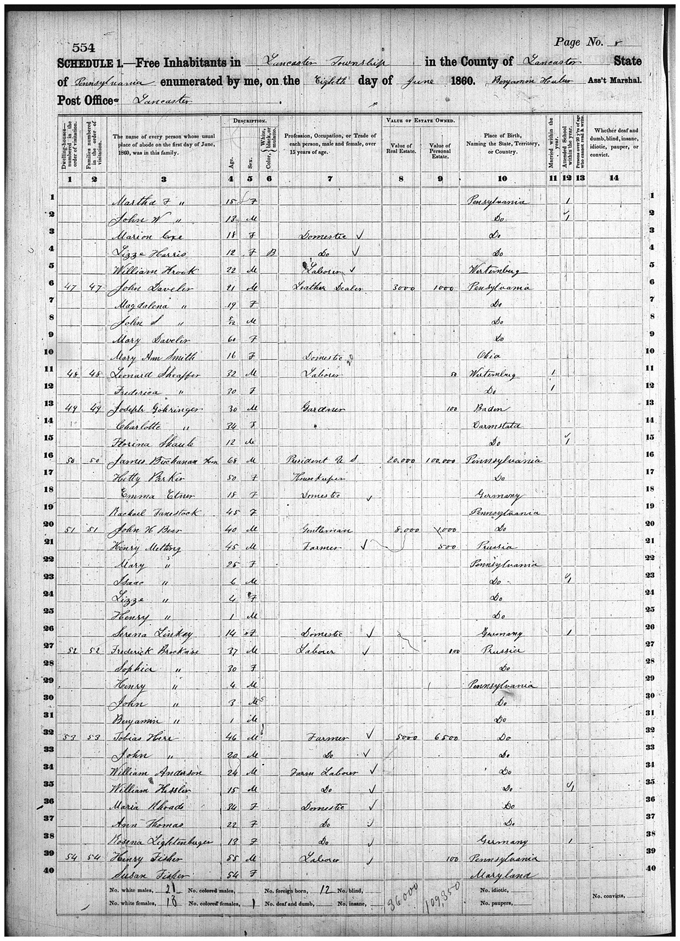 554
Page No.
SCHEDULE 1.—Free Inhabitants in Lancaster Township in the County of Lancaster State
of Pennsylvania enumerated by me, on the Eighth day of June 1860. Benjamin Huber Ass't Marshal.
Post Office Lancaster
DESCRIPTION. VALUE OF ESTATE OWNED.
Dwelling-houses—numbered in the order of visitation. Families numbered in the order of visitation. The name of every person whose usual place of abode on the first day of June, 1860, was in this family. Age. Sex. Color, White, black, or mulatto. Profession, Occupation, or Trade of each person, male and female, over 15 years of age. Value of Real Estate. Value of Personal Estate. Place of Birth, Naming the State, Territory, or Country. Married within the year. Attended School within the year. Persons over 20 y'rs of age who cannot read & write. Whether deaf and dumb, blind, insane, idiotic, pauper, or convict.
1 2 3 4 5 6 7 8 9 10 11 12 13 14
1 Martha F " 15 F Pennsylvania 1 1
2 John W " 13 M Do 1 2
3 Marion Coxe 18 F Domestic Do 3
4 Lizza Harris 12 F B Do Do 4
5 William Krook 22 M Laborer Wertemburg 5
6 47 47 John Daveler 21 M Leather Dealer 3000 1000 Pennsylvania 6
7 Magdalena " 19 F Do 7
8 John S " M Do 8
9 Mary Daveler 60 F Do 9
10 Mary Ann Smith 16 F Domestic Ohio 10
11 48 48 Leonard Sheaffer 32 M Laborer 50 Wertemburg 1 11
12 Frederica " 30 F Do 1 12
13 49 49 Joseph Gehringer 30 M Gardner 100 Baden 13
14 Charlotte " 34 F " Darmstadt 14
15 Florina Skaub 12 M Do 1 15
16 50 50 James Buchanan Hon 68 M President U S 20,000 100,000 Pennsylvania 16
17 Hetty Parker 50 F Housekeeper Do 17
18 Emma Etner 18 F Domestic Germany 18
19 Rachael Fanestock 45 F Pennsylvania 19
20 51 51 John H Bear 40 M Gentleman 8.000 1000 Do 20
21 Henry Metting 45 M Farmer 500 Prussia 21
22 Mary " 25 F Pennsylvania 22
23 Isaac " 6 M Do 1 23
24 Lizza " 4 F Do 24
25 Henry " 1 M Do 25
26 Serena Lindsay 14 F Domestic Germany 1 26
27 52 52 Frederick Brockase 37 M Laborer 100 Prussia 27
28 Sophia " 30 F Do 28
29 Henry " 4 M Pennsylvania 29
30 John " 3 M Do 30
31 Benjamin " 1 M Do 31
32 53 53 Tobias Herr 46 M Farmer 5000 6500 Do 32
33 John " 20 M Do Do 33
34 William Anderson 24 M Farm Laborer Do 34
35 William Hessler 15 M Do Do 1 35
36 Maria Rhoads 24 F Domestic Do 36
37 Ann Thomas 22 F Do Do 37
38 Rosena Lightenburger 13 F Do Germany 1 38
39 54 54 Henry Fisher 55 M Laborer 100 Pennsylvania 39
40 Susan Fisher 54 F Maryland 40
No. white males, 21 No. colored males, No. foreign born, 12 No. blind, 36000 109,350 No. idiotic, No. convicts,
No. white females, 18 No. colored females, 1 No. deaf and dumb, No. insane, No. paupers,